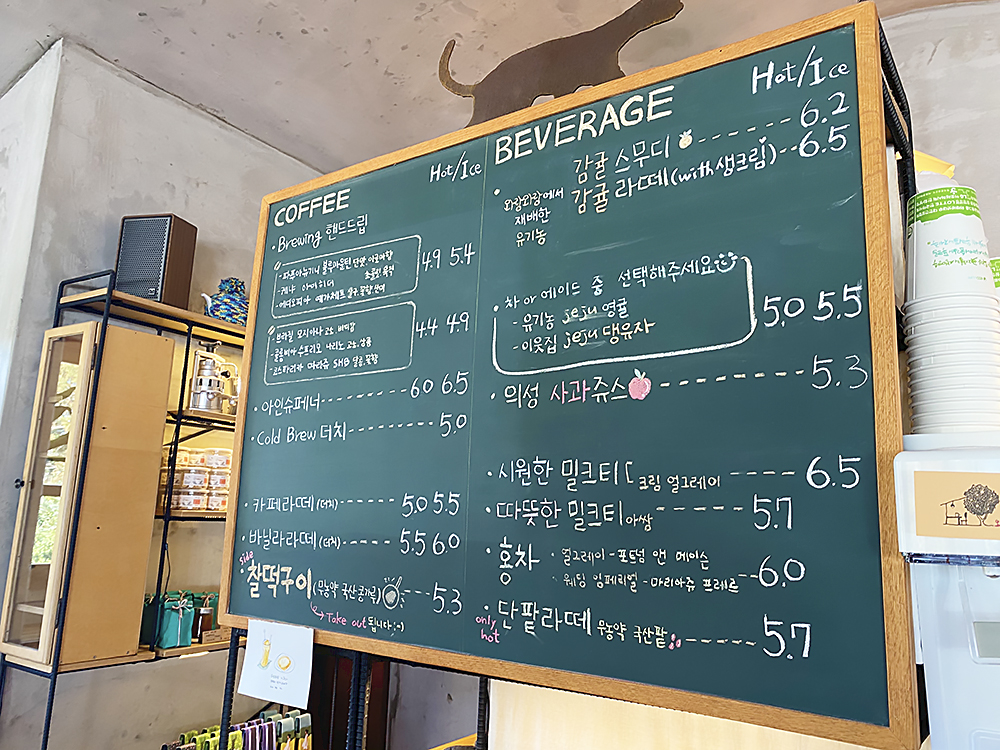 COFFEE Hot/Ice
· Brewing 핸드드립
- 파푸아뉴기니 블루마운틴
- 케냐
- 에티오피아 예가체프
4.9 5.4
- 브라질 모지아나
- 콜롬비아 수프리모 나리뇨
- 코스타리카 따라쥬 SHB
4.4 4.9
· 아인슈페너 6.0 6.5
· Cold Brew 더치 5.0
· 카페라떼 (더치) 5.0 5.5
· 바닐라라떼 (더치) 5.5 6.0
side
· 찰떡구이 (무농약 국산콩가루) 5.3
Take out 됩니다 ;-)
BEVERAGE Hot/Ice
· 와랑와랑에서
재배한
유기농
감귤 스무디 6.2
감귤 라떼 (with 생크림) 6.5
· 차 아 에이드 중 선택해주세요
- 유기농 jeju 영귤
- 이웃집 jeju 댕유자
5.0 5.5
· 의성 사과쥬스 5.3
· 시원한 밀크티 크림 얼그레이 6.5
· 따뜻한 밀크티 아쌈 5.7
· 홍차 · 얼그레이 - 포트넘 앤 메이슨
· 웨딩 임페리얼 - 마리아쥬 프레르
6.0
only
hot
· 단팥라떼 무농약 국산팥 5.7